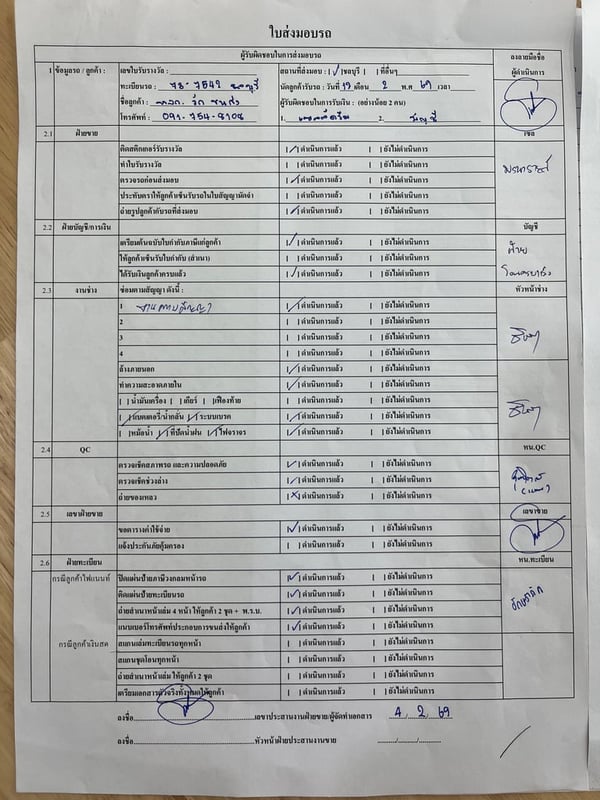 ใบส่งมอบรถ
ผู้รับผิดชอบในการส่งมอบรถ ลงลายมือชื่อ
1 ข้อมูลรถ / ลูกค้า : เลขใบรับรางวัล : สถานที่ส่งมอบ : [ / ]ชลบุรี [ ]ที่อื่นๆ ผู้ดำเนินการ
ทะเบียนรถ : 78-7542 ชลบุรี นัดลูกค้ารับรถ : วันที่ 19 เดือน 2 พ.ศ 69 เวลา
ชื่อลูกค้า : ผู้รับผิดชอบในการรับเงิน : (อย่างน้อย 2 คน)
โทรศัพท์ : 091-754-8108 1. 2.
2.1 ฝ่ายขาย เซล
ติดสติกเกอร์รับรางวัล [ / ]ดำเนินการแล้ว [ ]ยังไม่ดำเนินการ
ทำใบรับรางวัล [ ]ดำเนินการแล้ว [ ]ยังไม่ดำเนินการ
ตรวจรถก่อนส่งมอบ [ / ]ดำเนินการแล้ว [ ]ยังไม่ดำเนินการ
ประทับตราให้ลูกค้าเซ็นรับรถในใบสัญญามัดจำ [ ]ดำเนินการแล้ว [ ]ยังไม่ดำเนินการ
ถ่ายรูปลูกค้ากับรถที่ส่งมอบ [ / ]ดำเนินการแล้ว [ ]ยังไม่ดำเนินการ
2.2 ฝ่ายบัญชี/การเงิน บัญชี
เตรียมต้นฉบับใบกำกับภาษีแก่ลูกค้า [ / ]ดำเนินการแล้ว [ ]ยังไม่ดำเนินการ
ให้ลูกค้าเซ็นรับใบกำกับ (สำเนา) [ ]ดำเนินการแล้ว [ ]ยังไม่ดำเนินการ
ได้รับเงินลูกค้าครบแล้ว [ / ]ดำเนินการแล้ว [ ]ยังไม่ดำเนินการ
2.3 งานช่าง ซ่อมตามสัญญา ดังนี้ : หัวหน้าช่าง
1 งานตามสัญญา [ / ]ดำเนินการแล้ว [ ]ยังไม่ดำเนินการ
2 [ ]ดำเนินการแล้ว [ ]ยังไม่ดำเนินการ
3 [ ]ดำเนินการแล้ว [ ]ยังไม่ดำเนินการ
4 [ ]ดำเนินการแล้ว [ ]ยังไม่ดำเนินการ
ล้างภายนอก [ / ]ดำเนินการแล้ว [ ]ยังไม่ดำเนินการ
ทำความสะอาดภายใน [ / ]ดำเนินการแล้ว [ ]ยังไม่ดำเนินการ
[ ]น้ำมันเครื่อง [ ]เกียร์ [ ]เฟืองท้าย [ ]ดำเนินการแล้ว [ ]ยังไม่ดำเนินการ
[ / ]แบตเตอรี่/น้ำกลั่น [ / ]ระบบเบรค [ / ]ดำเนินการแล้ว [ ]ยังไม่ดำเนินการ
[ ]หม้อน้ำ [ / ]ที่ปัดน้ำฝน [ / ]ไฟจราจร [ / ]ดำเนินการแล้ว [ ]ยังไม่ดำเนินการ
2.4 QC หน.QC
ตรวจเช็คสภาพรถ และความปลอดภัย [ / ]ดำเนินการแล้ว [ ]ยังไม่ดำเนินการ
ตรวจเช็คช่วงล่าง [ / ]ดำเนินการแล้ว [ ]ยังไม่ดำเนินการ
ถ่ายของเหลว [ X ]ดำเนินการแล้ว [ ]ยังไม่ดำเนินการ
2.5 เลขาฝ่ายขาย เลขาขาย
ขอตารางค่าใช้จ่าย [ / ]ดำเนินการแล้ว [ ]ยังไม่ดำเนินการ
แจ้งประกันภัยคุ้มครอง [ ]ดำเนินการแล้ว [ ]ยังไม่ดำเนินการ
2.6 ฝ่ายทะเบียน หน.ทะเบียน
กรณีลูกค้าไฟแนนท์ ปิดแผ่นป้ายภาษีวงกลมหน้ารถ [ / ]ดำเนินการแล้ว [ ]ยังไม่ดำเนินการ
ติดแผ่นป้ายทะเบียนรถ [ / ]ดำเนินการแล้ว [ ]ยังไม่ดำเนินการ
ถ่ายสำเนาหน้าเล่ม 4 หน้า ให้ลูกค้า 2 ชุด + พ.ร.บ. [ / ]ดำเนินการแล้ว [ ]ยังไม่ดำเนินการ
แนบเบอร์โทรศัพท์ประกอบการขนส่งให้ลูกค้า [ / ]ดำเนินการแล้ว [ ]ยังไม่ดำเนินการ
กรณีลูกค้าเงินสด สแกนเล่มทะเบียนรถทุกหน้า [ ]ดำเนินการแล้ว [ ]ยังไม่ดำเนินการ
สแกนชุดโอนทุกหน้า [ ]ดำเนินการแล้ว [ ]ยังไม่ดำเนินการ
ถ่ายสำเนาหน้าเล่ม ให้ลูกค้า 2 ชุด [ ]ดำเนินการแล้ว [ ]ยังไม่ดำเนินการ
เตรียมเอกสารตัวจริงทั้งหมดให้ลูกค้า [ ]ดำเนินการแล้ว [ ]ยังไม่ดำเนินการ
ลงชื่อ เลขาประสานงานฝ่ายขาย/ผู้จัดทำเอกสาร 4 / 2 / 69
ลงชื่อ หัวหน้าฝ่ายประสานงานขาย / /